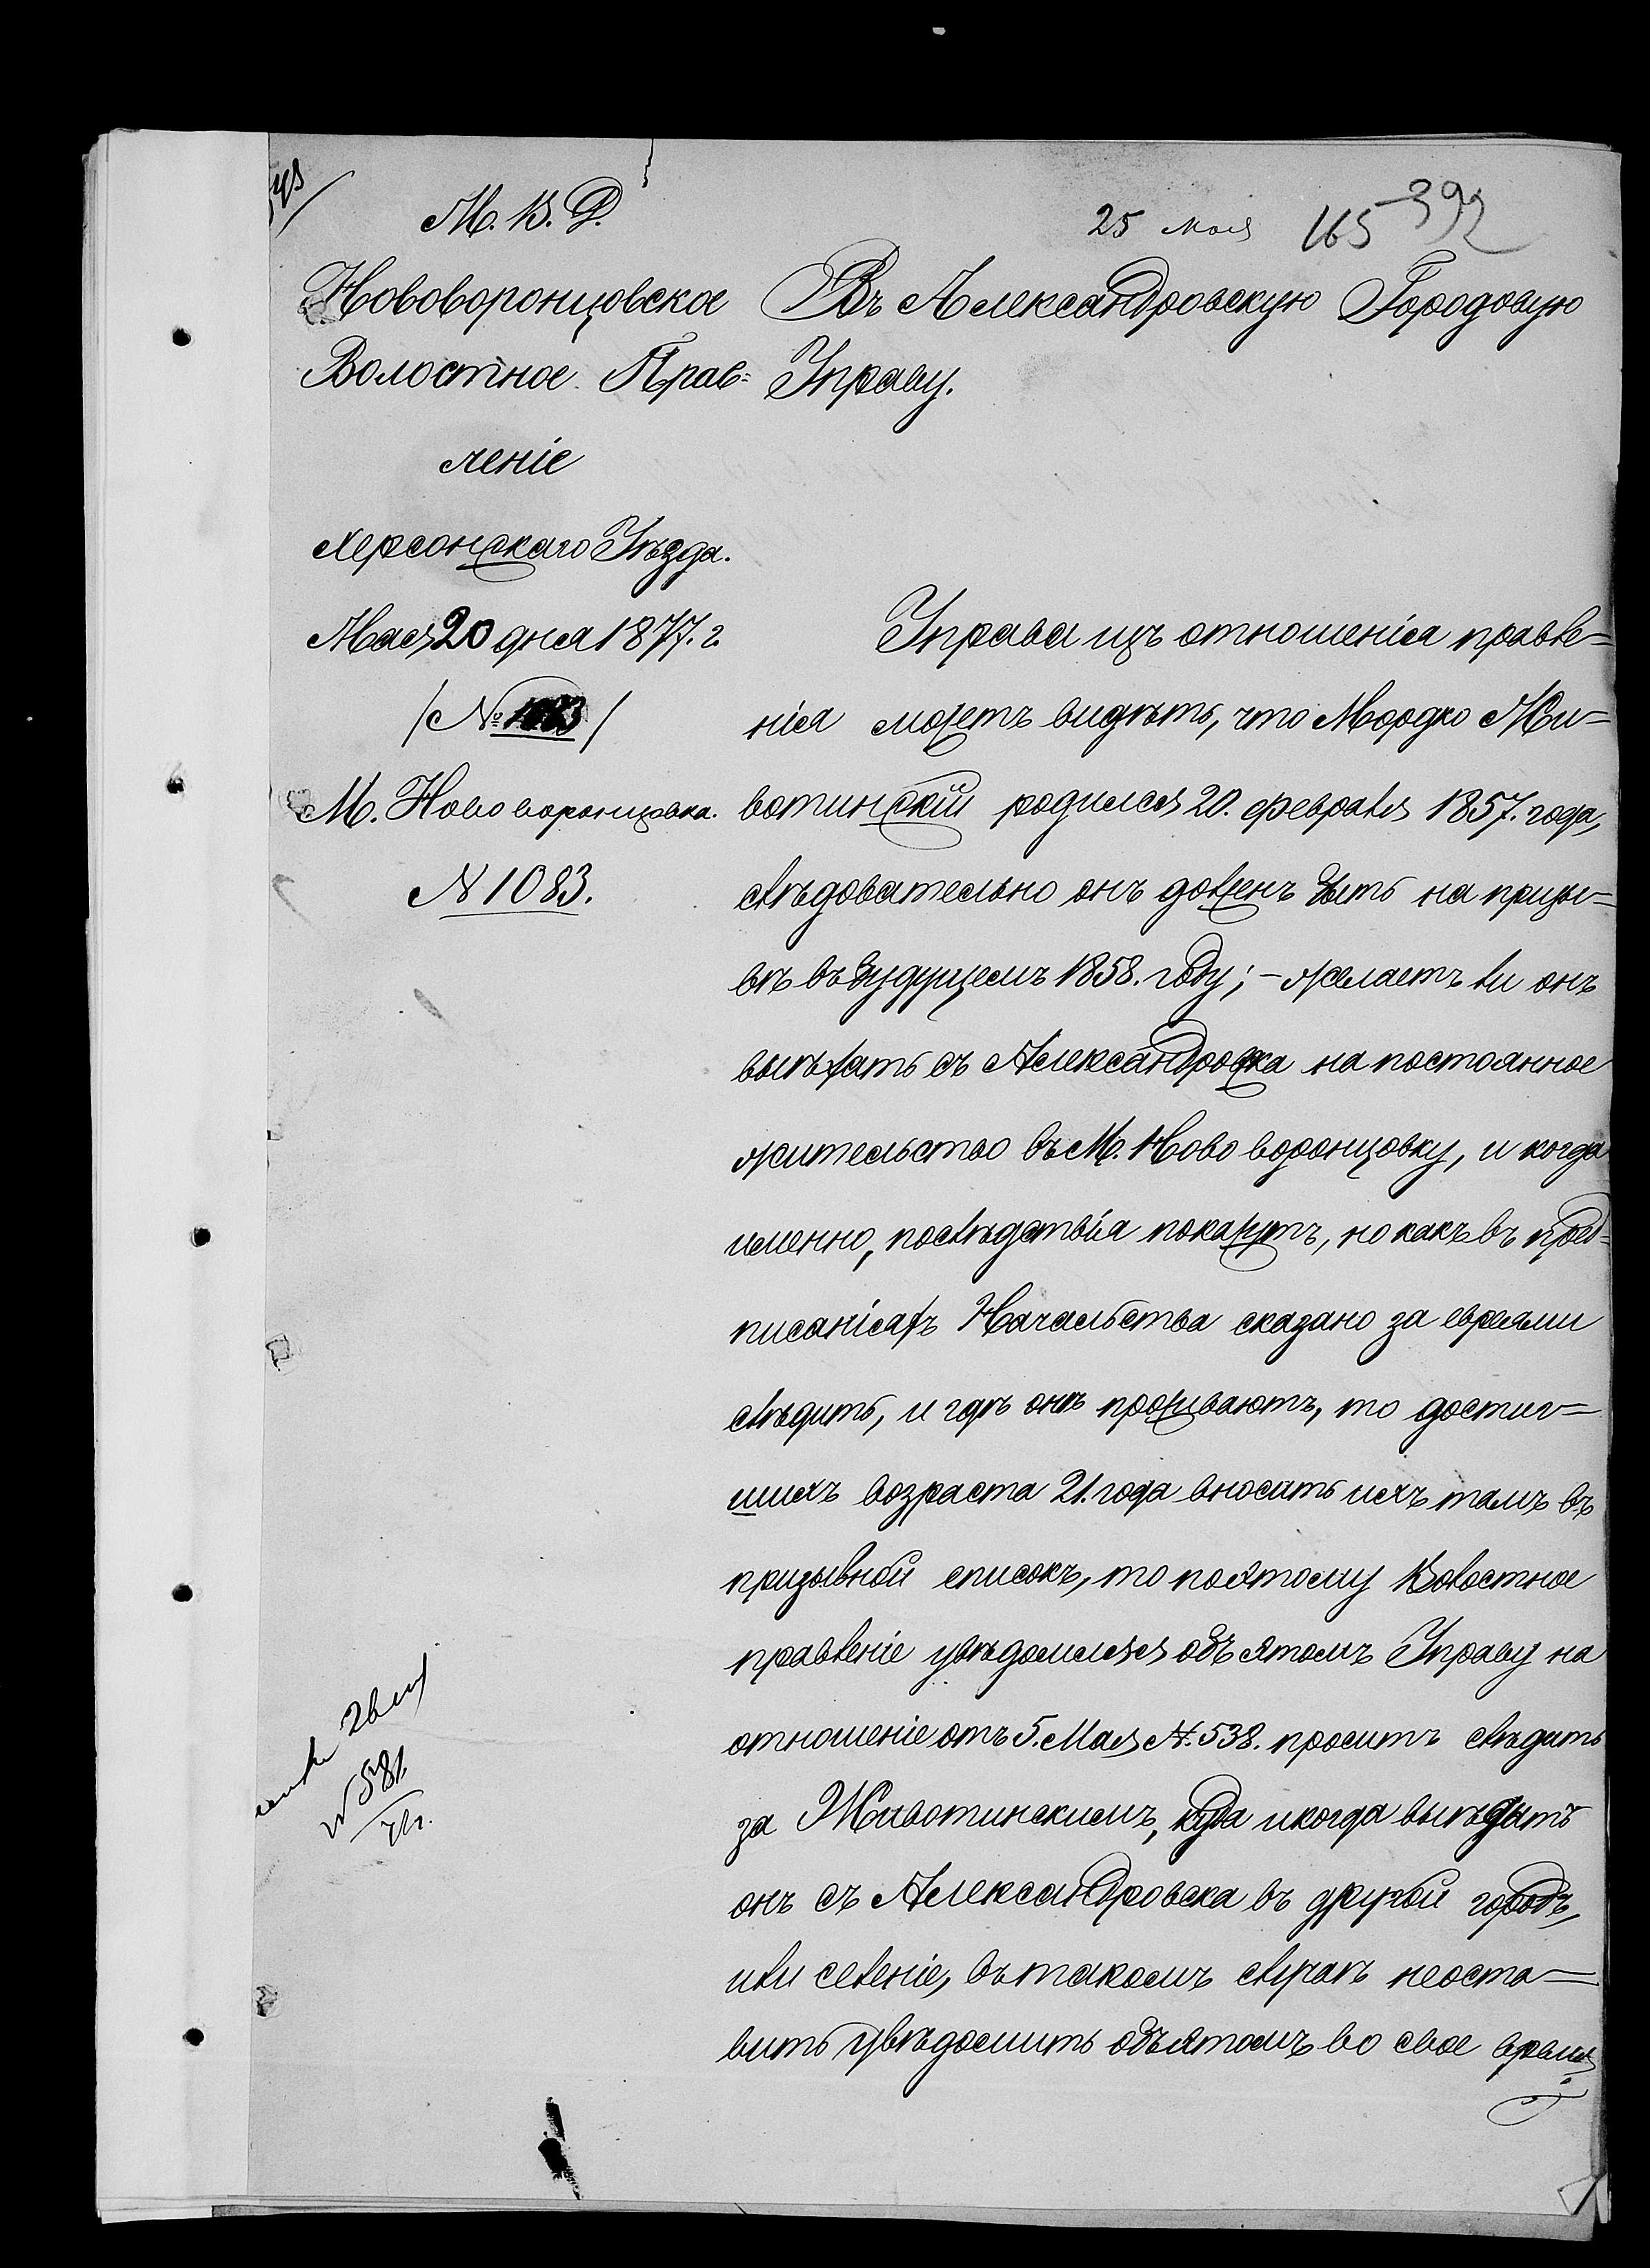 М. В. Д.
Нововоронцовское
Волостное Прав=
леніе
Херсонскаго Уѣзда.
Мая 20 дня 1877. г.
/ № 1083 /
М. Ново воронцовка.
N 1083.
25 мая 165 392
Въ Александровскую Городовую
Управу.
Управа изъ отношенія правле=
нія можетъ видѣть, что Мордко Жи=
вотинскій родился 20. февраля 1857. года,
слѣдовательно онъ долженъ быть на призы=
вѣ въ будущемъ 1858. году; - желаетъ ли онъ
выѣхать съ Александровска на постоянное
жительство въ М. Ново воронцовку, и когда
именно, послѣдствія покажутъ, но какъ въ пред=
писаніяхъ Начальства сказано за евреями
слѣдить, и гдѣ онѣ проживаютъ, то достиг=
шихъ возраста 21. года вносить ихъ тамъ въ
призывной списокъ, то поэтому Волостное
правленіе увѣдомляя объ этомъ Управу на
отношеніе отъ 5. Мая N. 538. проситъ слѣдить
за Животинскимъ, куда и когда выѣдитъ
онъ съ Александровска въ другой городъ,
или селеніе, въ такомъ случаѣ неоста=
вить увѣдомить объ этомъ во свое время
26 мая
N 581
77 г.